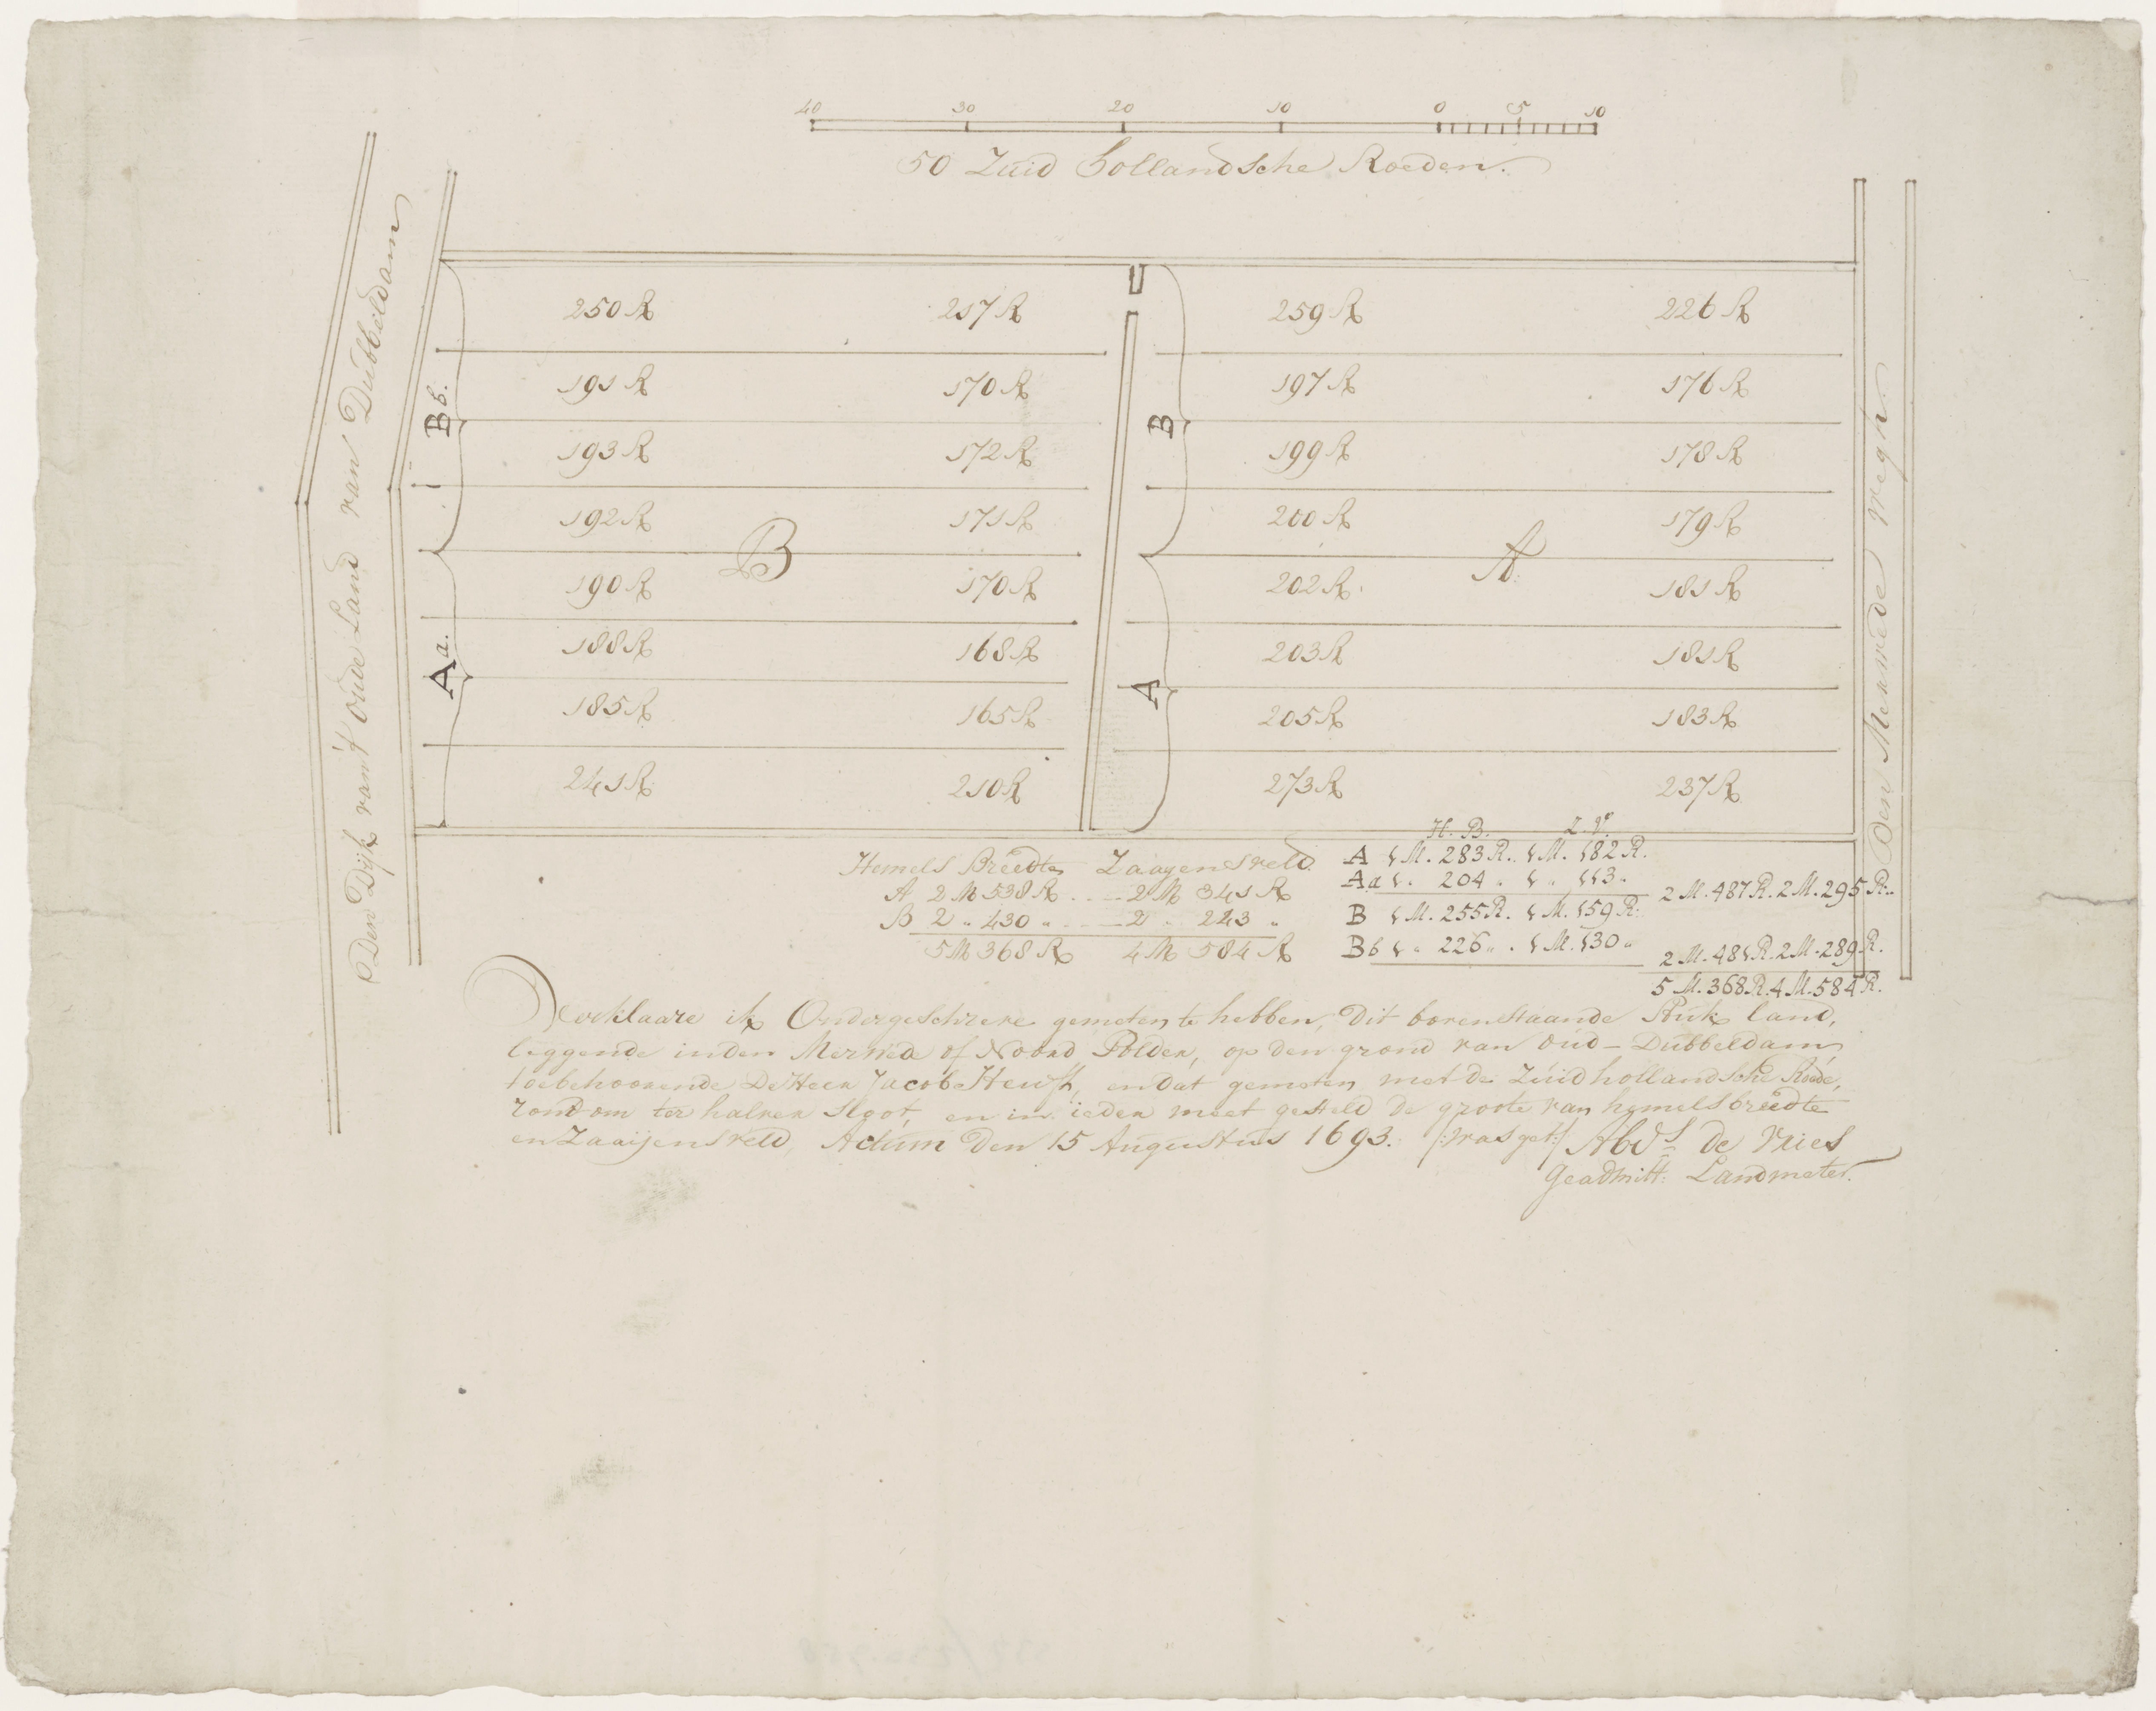 40 30 20 10 0 5 10
50 Zuid Hollandsche Roeden.
Den Dijk van't Oude Land van Dubbeldam
Bb.
Aa.
B
A
Den Merwede Wegh
250 R 217 R 259 R 226 R
191 R 170 R 197 R 176 R
193 R 172 R 199 R 178 R
192 R 171 R 200 R 179 R
B A:
190 R 170 R 202 R. 181 R
188 R 168 R 203 R 181 R
185 R 165 R 205 R 183 R
241 R 210 R 273 R 237 R
Hemels Breedte Zaayensveld
A 2 M 538 R .... 2 M 341 R
B 2 " 430 " .... 2 " 243 "
5 M 368 R 4 M 584 R
H. B. Z. V.
A 1 M. 283 R. 1 M. 182 R.
Aa 1 " 204 " 1 " 113 " 2 M. 487 R. 2 M. 295 R.
B 1 M. 255 R. 1 M. 159 R.
Bb 1 " 226 " 1 M. 130 " 2 M. 481 R. 2 M. 289 R.
5 M. 368 R. 4 M. 584 R.
Verklaare ik Ondergeschreve gemeten te hebben, Dit bovenstaande Stuk land,
leggende inden Merwede of Noord Polder, op den grond van Oud-Dubbeldam,
toebehoorende De Heer Jacob Heuft, en dat gemeten met de Zuidhollandsche Roede,
rondom ter halver Sloot, en in ieder meet gesteld de groote van hemelsbreedte
en Zaaijensveld, Actum Den 15 Augustus 1693. /:was get:/ Abds. de Vries
Geadmitt: Landmeter.